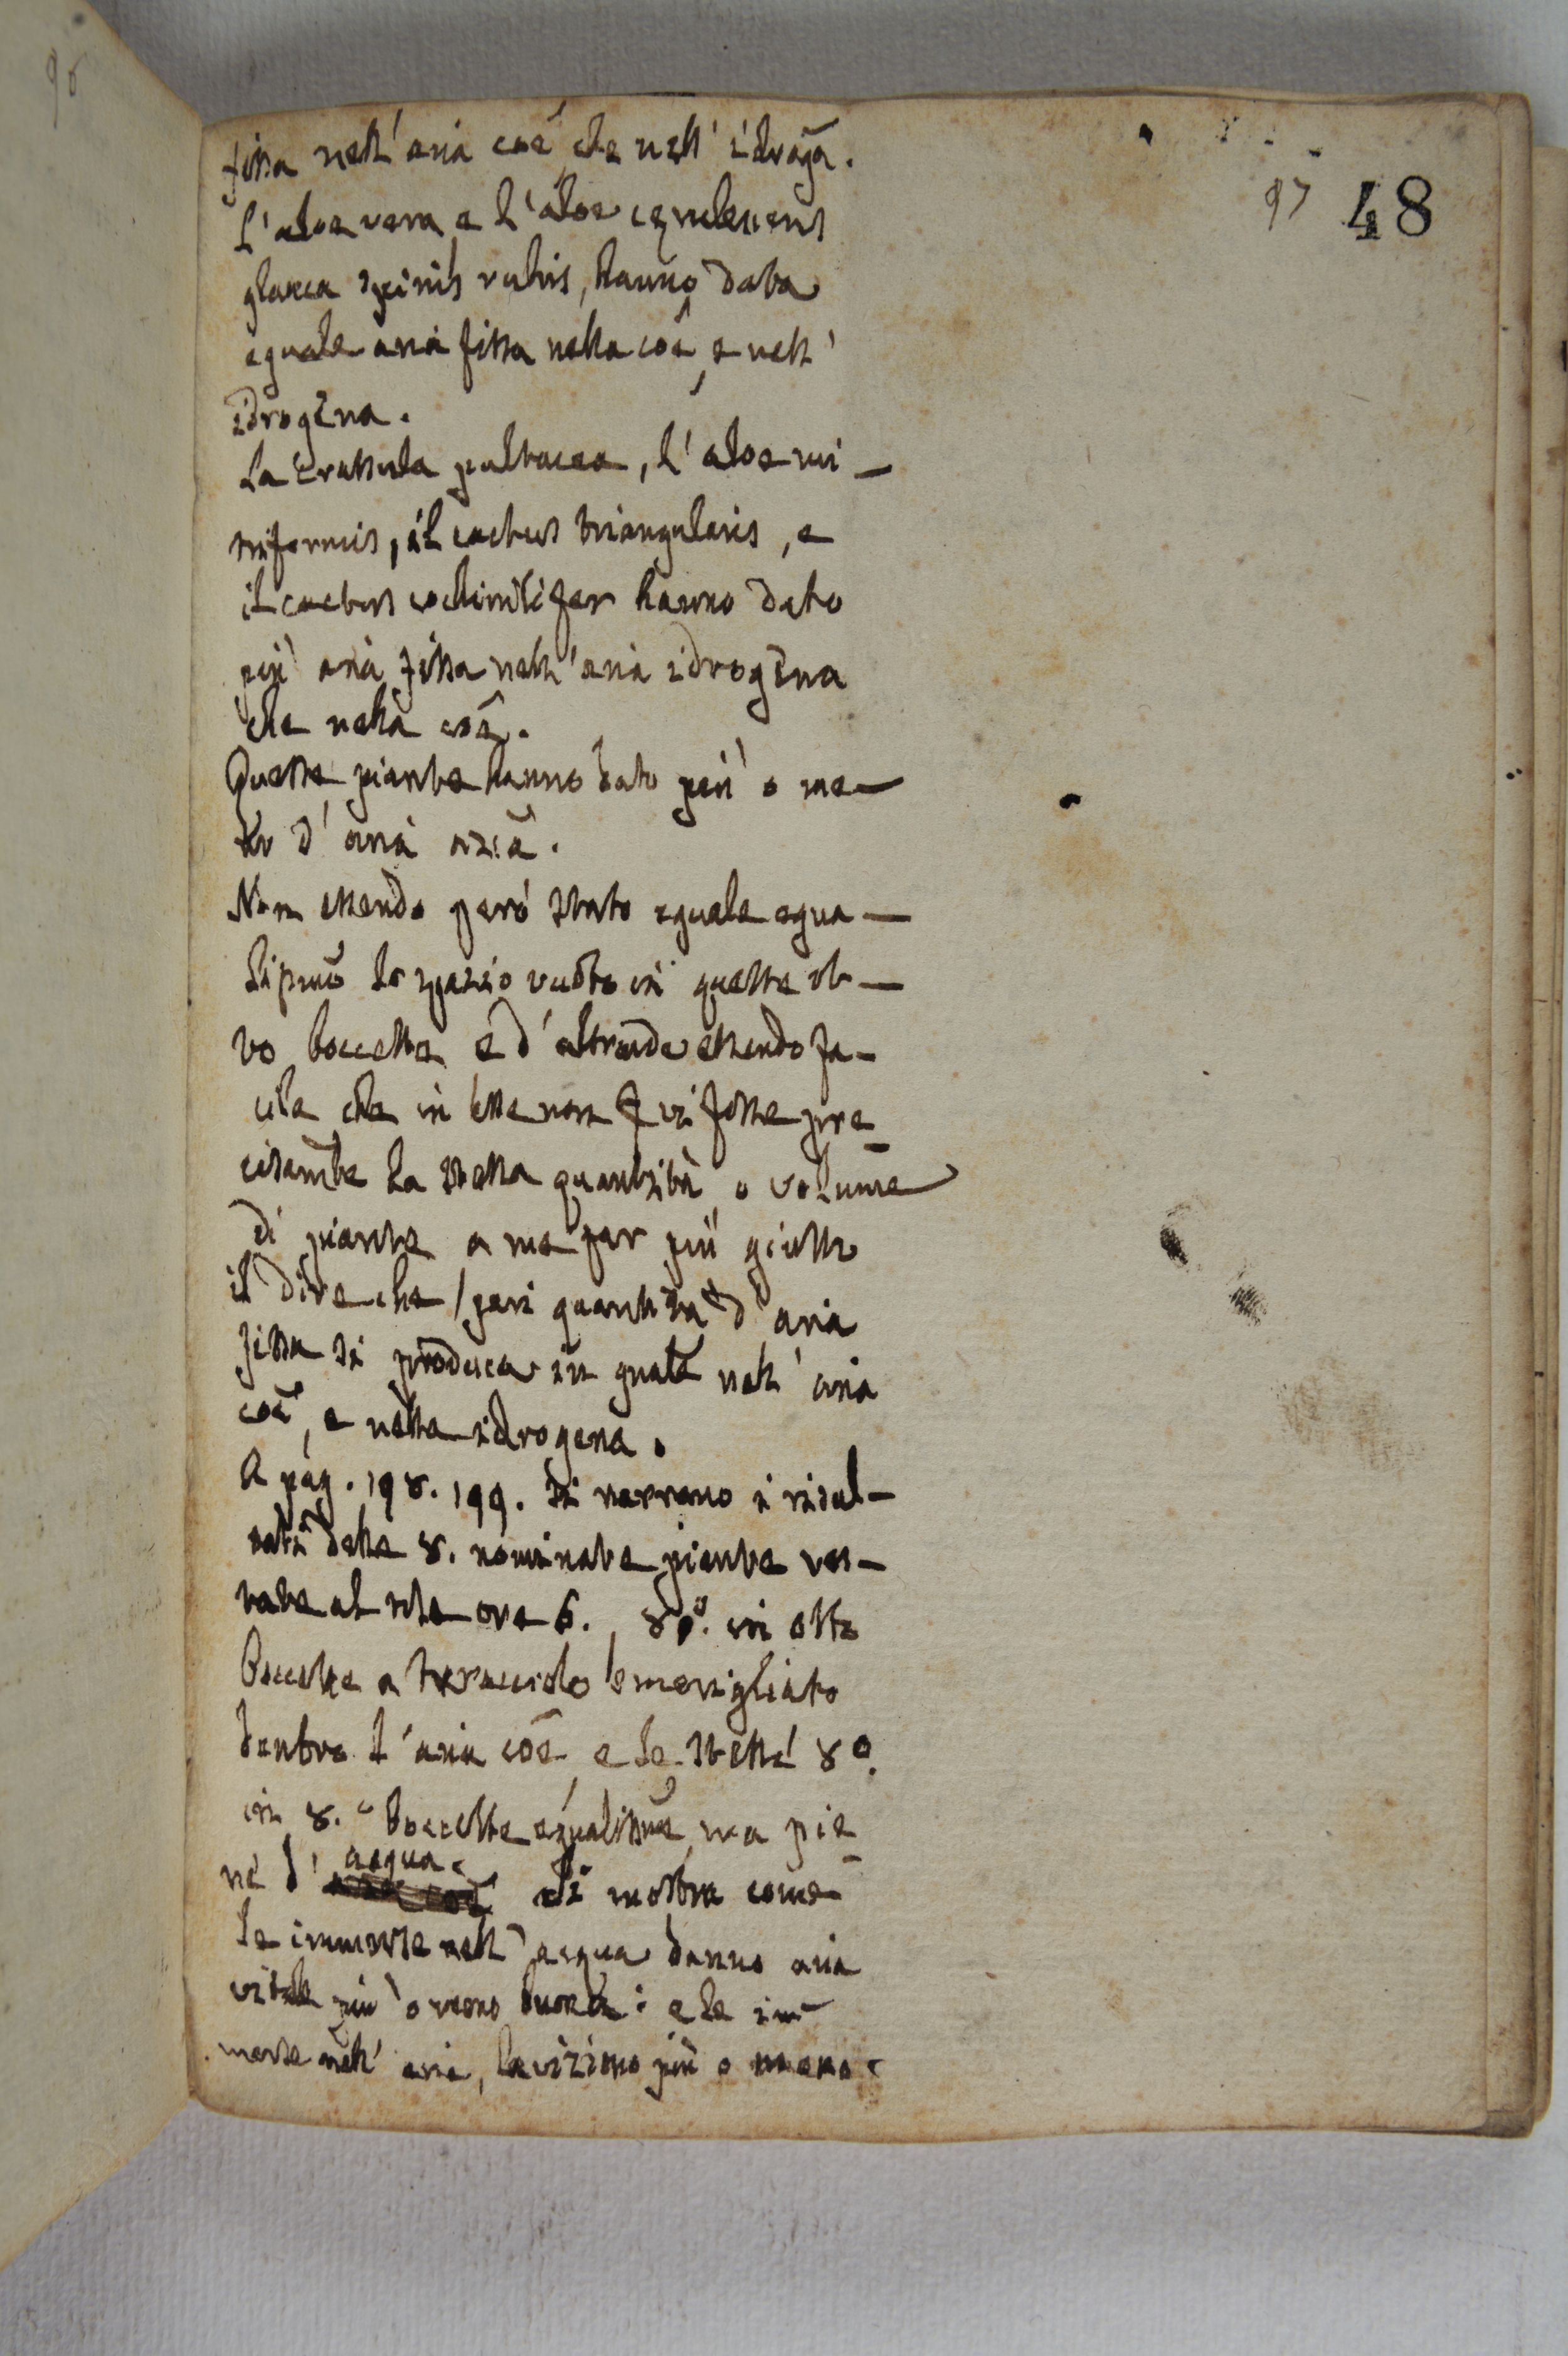 96
97 48
fissa nell'aria coē che nell'idrogā.
L'aloe vera e l'aloe
glauca spinis rubris, hanno data
eguale aria fissa nella coē, e nell'
idrogēna.
La Crassula pultacea, l'aloe mi-
triformis, il cactus triangularis, e
il cactus cochinilifer hanno dato
più aria fissa nell'aria idrogēna
che nella coē.
Queste piante hanno dato più o me-
no d'aria aziā.
Non essendo però stato eguale egua-
lissmō lo spazio vuoto in queste ot-
to boccette e d'altronde essendo fa-
cile che in esse non vi fosse pre-
cisamte la stessa quantità o volume
di piante a me par più giusto
il dire che pari quantità d'aria
fissa si produca in gnale nell'aria
coē, e nella idrogena.
A pag. 198. 199. si narrano i risul-
tati delle 8. nominate piante res-
tate al sole ore 6. 8.° in otto
boccette a turacciolo smerigliato
dentro l'aria coē e le stesse 8.°
in 8.° boccette egualissme, ma pie-
ne d' acqua. si mostra come
le immerse nell'acqua danno aria
vitale più o meno buona: e le im-
merse nell'aria, la viziano più o meno.